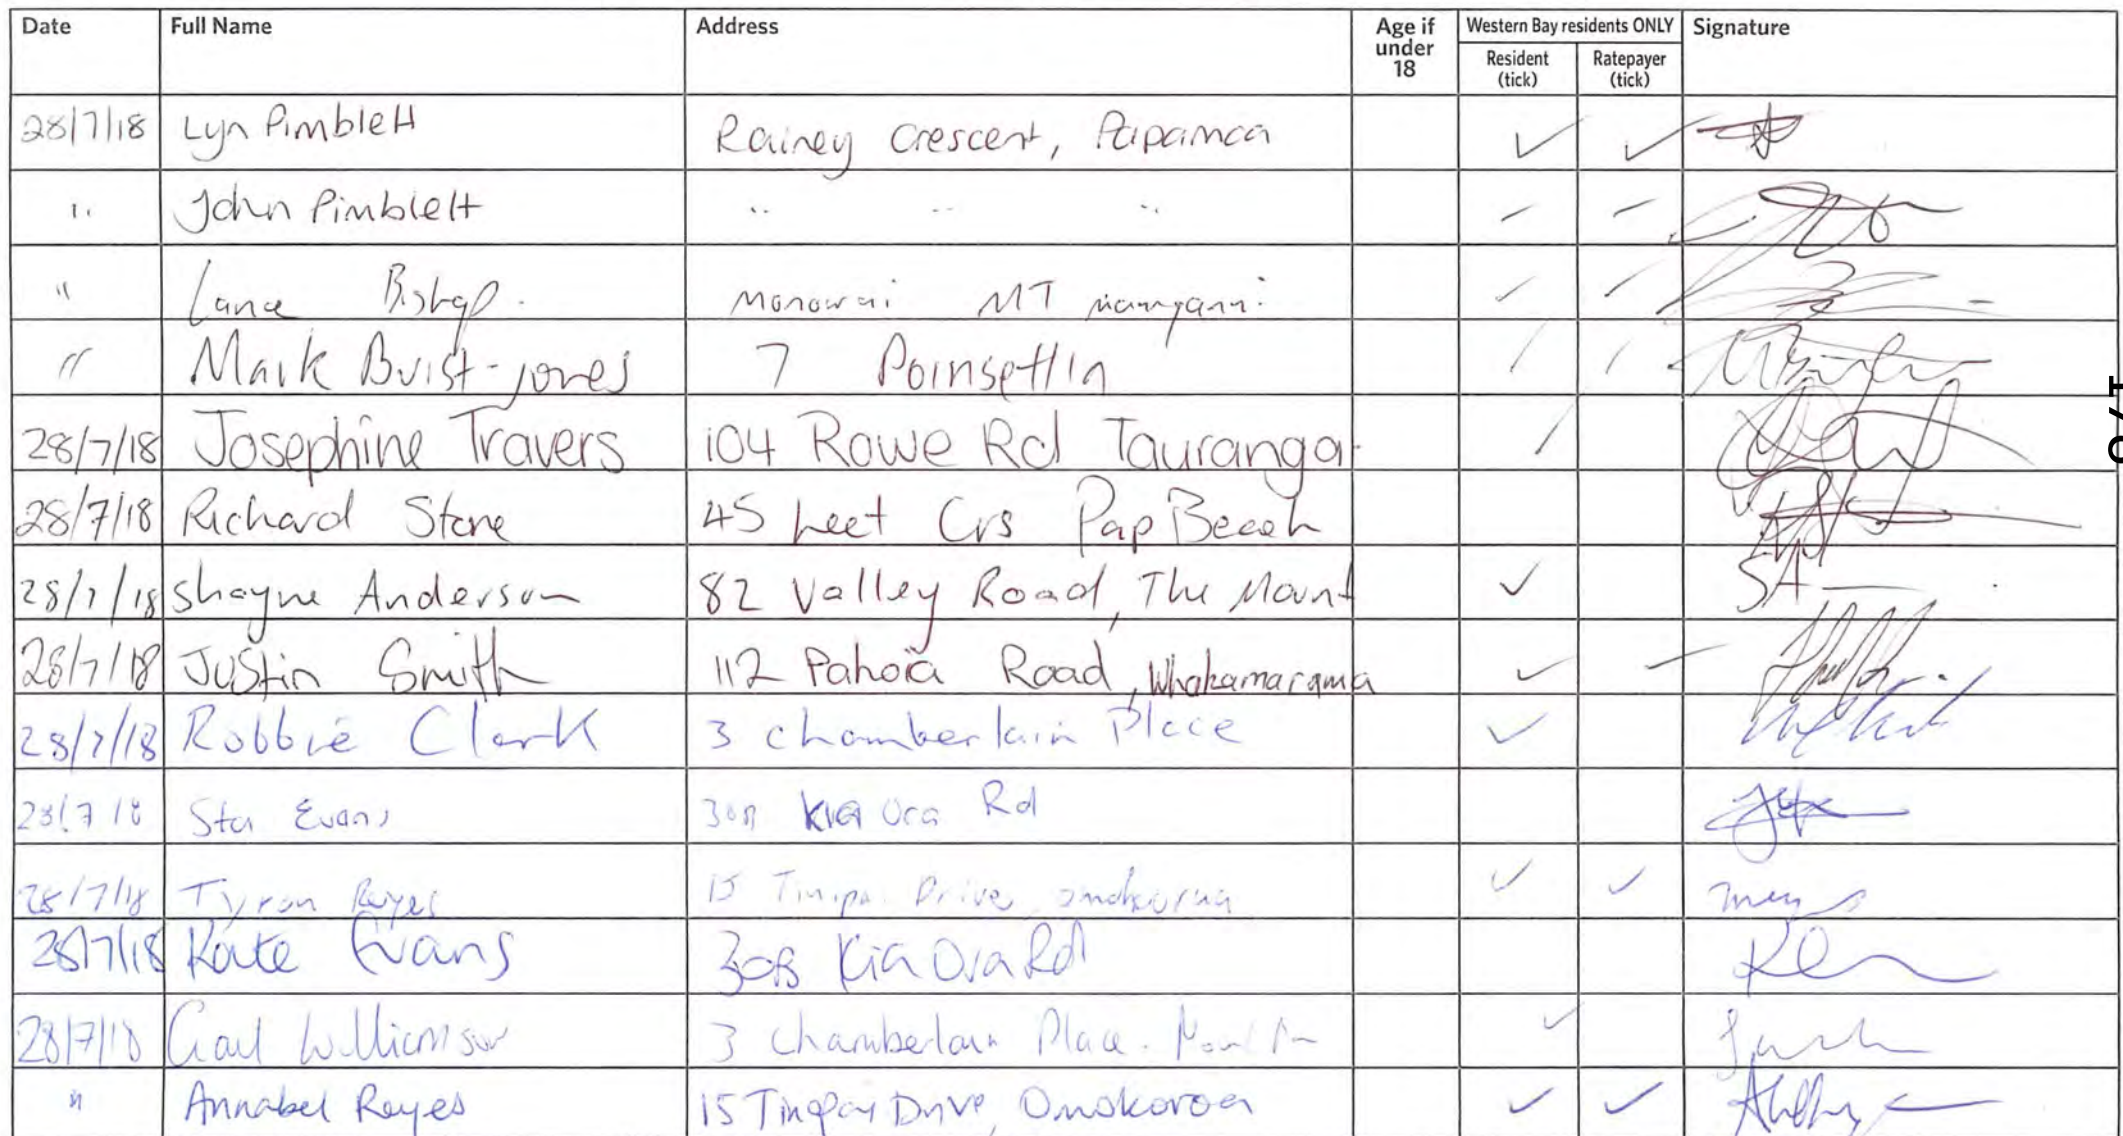 Date Full Name Address Age if under 18 Western Bay residents ONLY Resident (tick) Ratepayer (tick) Signature
28/7/18 Lyn Pimblett Rainey Crescent, Papamoa ✓ ✓
" John Pimblett " " "
" Lance Bishop. Monowai MT
" Mark Buist-Jones 7 Poinsettia
28/7/18 Josephine Travers 104 Rowe Rd Tauranga
28/7/18 Richard Stone 45 Leet Crs Pap Beach
28/7/18 Shayne Anderson 82 Valley Road, The Mount ✓ SA
28/7/18 Justin Smith 112 Pahoia Road, Whakamarama ✓
28/7/18 Robbie Clark 3 Chamberlain Place ✓
28/7/18 Evans 30B Kia Ora Rd
28/7/18 Tyron Reyes 15 Drive Omokoroa ✓ ✓
28/7/18 Kate Evans 30B Kia Ora Rd
28/7/18 Gail Williamson 3 Chamberlain Place. ✓
" Annabel Reyes 15 Drive, Omokoroa ✓ ✓